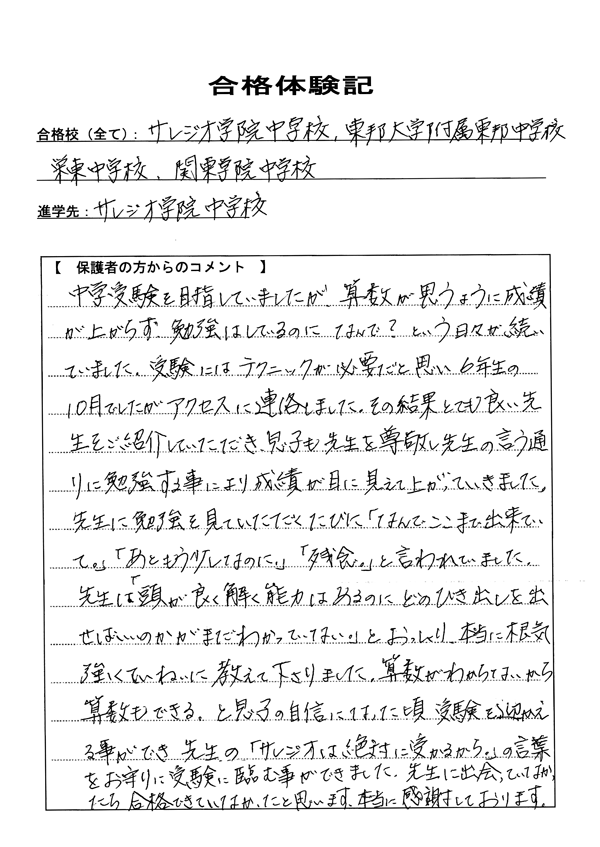 合格体験記
合格校（全て）: サレジオ学院中学校, 東邦大学付属東邦中学校
栄東中学校、関東学院中学校
進学先: サレジオ学院中学校
【 保護者の方からのコメント 】
中学受験を目指していましたが、算数が思うように成績
が上がらず、勉強はしているのに なんで？という日々が続い
ていました。受験にはテクニックが必要だと思い 6年生の
10月でしたがアクセスに連絡しました。その結果とても良い先
生をご紹介していただき、息子も先生を尊敬し先生の言う通
りに勉強する事により成績が目に見えて上がっていきました。
先生に勉強を見ていただくたびに「なんでここまで出来てい
て。」「あともう少しなのに。」「残念。」と言われていました。
先生は「頭が良く解く能力はあるのにどのひき出しを出
せばいいのかがまだわかっていない。」とおっしゃり、本当に根気
強くていねいに教えて下さりました。算数がわからないから
算数もできる。と息子の自信になった頃 受験をむかえ
る事ができ 先生の「サレジオは絶対に受かるから。」の言葉
をお守りに受験に臨む事ができました。先生に出会っていなかっ
たら 合格できていなかったと思います。本当に感謝しております。